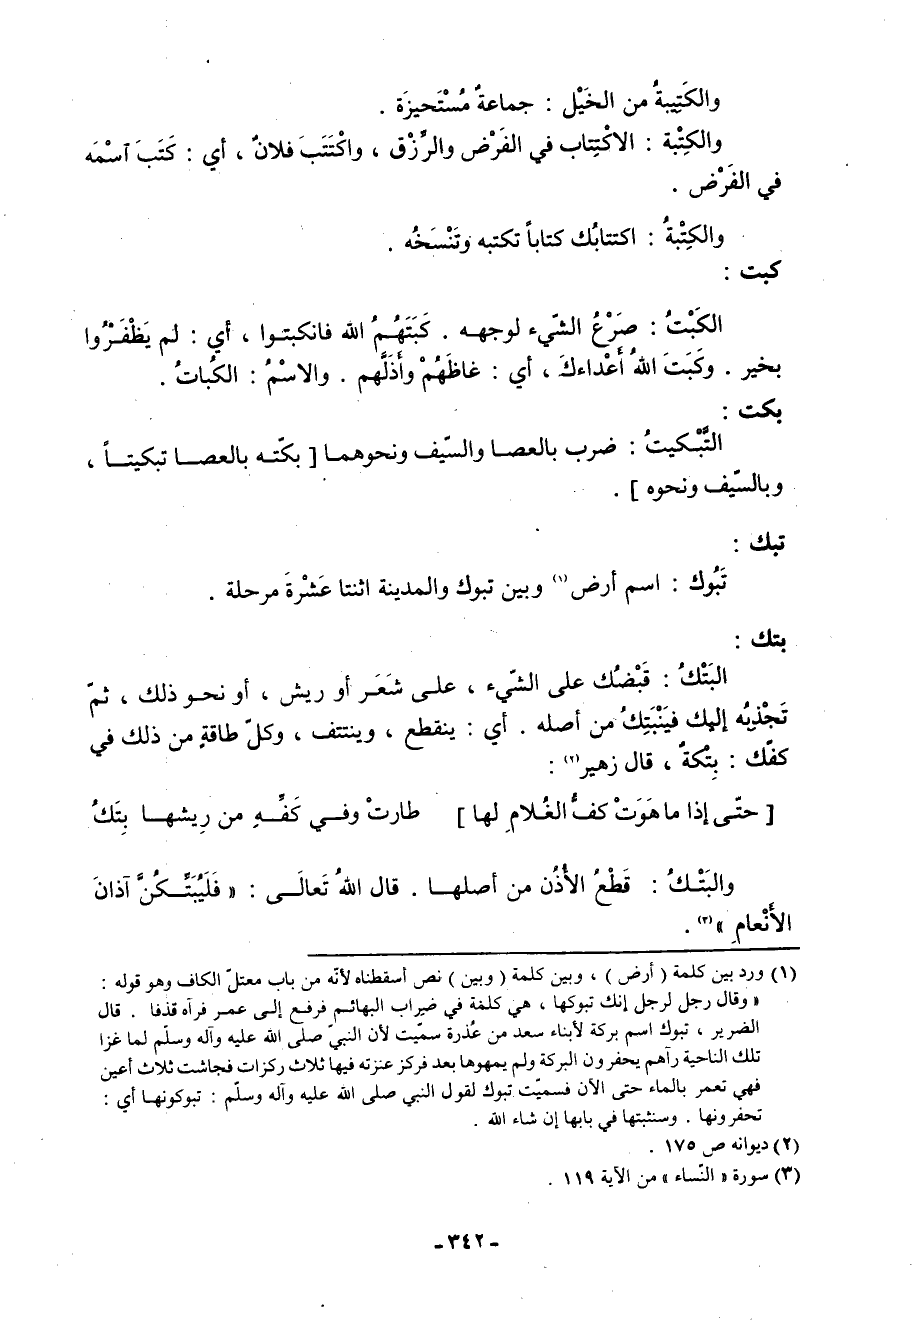 والكَتِيبةُ من الخَيْل : جماعةٌ مُسْتَحيزَة .
والكِتْبة : الاكْتِتاب في الفَرْض والرِّزْق ، واكْتَتَبَ فلانٌ ، أي : كَتَبَ آسْمَه
في الفَرْض .
والكِتْبةُ : اكتتابُك كتاباً تكتبه وتَنْسَخُه .
كبت :
الكَبْتُ : صَرْعُ الشّيء لوجهه . كَبَتَهُمُ الله فانكبتوا ، أي : لم يَظْفَرُوا
بخير . وكَبَتَ اللهُ أَعْداءك ، أي : غاظَهُمْ وأَذَلَّهم . والاسْمُ : الكُباتُ .
بكت :
التَّبْكيتُ : ضرب بالعصا والسّيف ونحوهما [ بكّته بالعصا تبكيتاً ،
وبالسّيف ونحوه ] .
تبك :
تَبُوك : اسم أرض(١) وبين تبوك والمدينة اثنتا عَشْرةَ مرحلة .
بتك :
البَتْكُ : قَبْضُك على الشّيء ، على شَعَر أو ريش ، أو نحو ذلك ، ثمّ
تَجْذِبُه إليك فيَنْبَتِكُ من أصله . أي : ينقطع ، وينتتف ، وكلّ طاقةٍ من ذلك في
كفّك : بِتْكةٌ ، قال زهير(٢) :
[ حتّى إذا ما هَوَتْ كفُّ الغُلامِ لها ] طارتْ وفي كَفِّهِ من رِيشها بِتَكُ
والبَتْكُ : قَطْعُ الأُذُن من أصلها . قال اللهُ تَعالَى : « فَلَيُبَتِّكُنَّ آذانَ
الأَنْعامِ »(٣) .
(١) ورد بين كلمة ( أرض ) ، وبين كلمة ( وبين ) نص أسقطناه لأنّه من باب معتلّ الكاف وهو قوله :
« وقال رجل لرجل إنك تبوكها ، هي كلمة في ضراب البهائم فرفع إلى عمر فرآه قذفا . قال
الضرير ، تبوك اسم بركة لأبناء سعد من عُذرة سمّيت لأن النبيّ صلى الله عليه وآله وسلّم لما غزا
تلك الناحية رآهم يحفرون البركة ولم يمهوها بعد فركز عنزته فيها ثلاث ركزات فجاشت ثلاث أعين
فهي تعمر بالماء حتى الآن فسميّت تبوك لقول النبي صلى الله عليه وآله وسلّم : تبوكونها أي :
تحفرونها . وسنثبتها في بابها إن شاء الله .
(٢) ديوانه ص ١٧٥ .
(٣) سورة « النّساء » من الآية ١١٩ .
- ٣٤٢ -